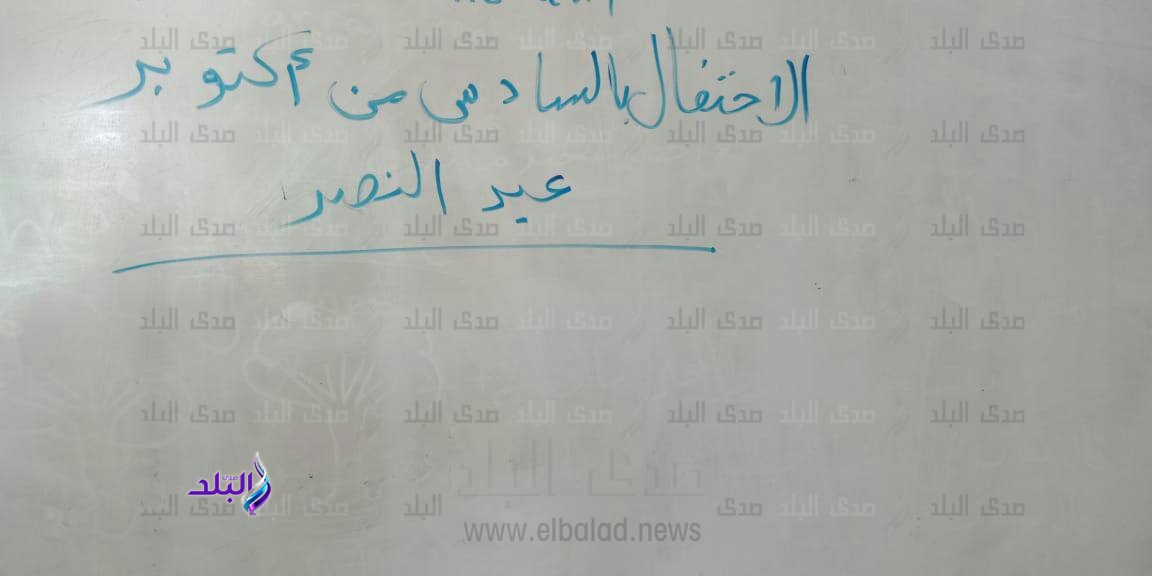 الاحتفال بالسادس من أكتوبر
عيد النصر
صدى البلد
www.elbalad.news